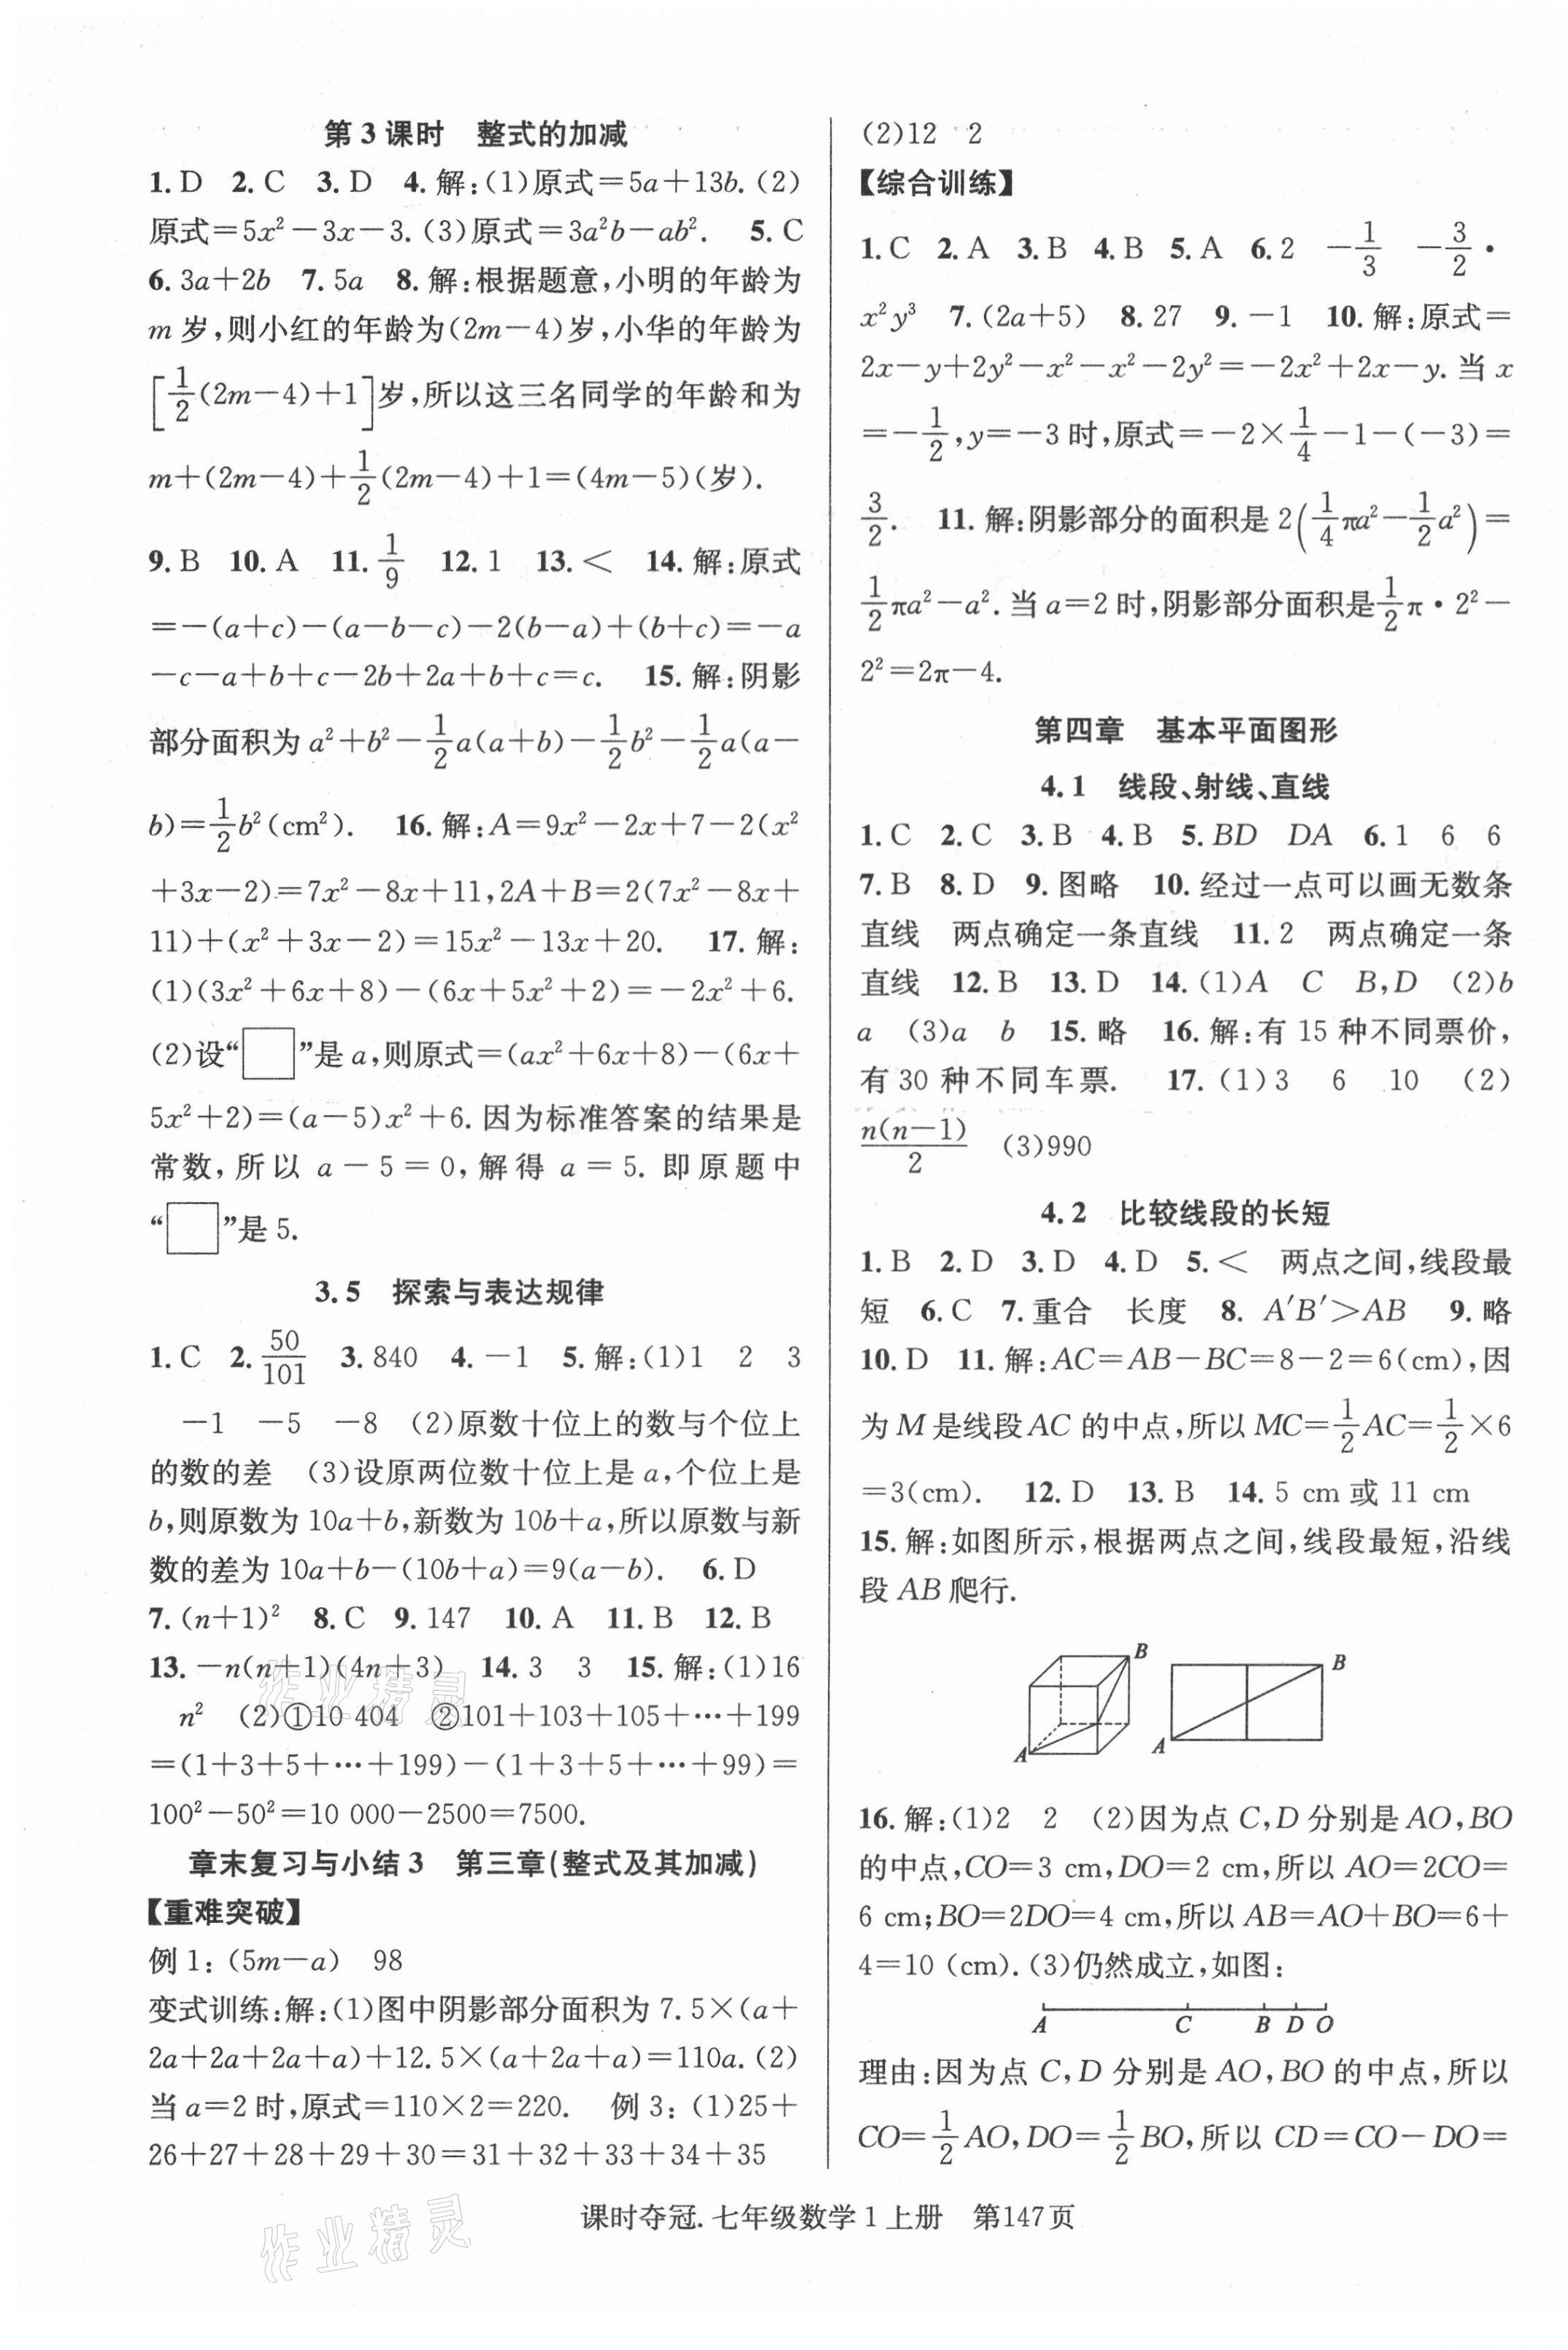 第3课时　整式的加减
1. D　2. C　3. D　4. 解:(1)原式=5a+13b. (2)
原式=5x²-3x-3. (3)原式=3a²b-ab².　5. C
6. 3a+2b　7. 5a　8. 解:根据题意,小明的年龄为
m岁,则小红的年龄为(2m-4)岁,小华的年龄为
[1/2(2m-4)+1]岁,所以这三名同学的年龄和为
m+(2m-4)+1/2(2m-4)+1=(4m-5)(岁).
9. B　10. A　11. 1/9　12. 1　13. <　14. 解:原式
=-(a+c)-(a-b-c)-2(b-a)+(b+c)=-a
-c-a+b+c-2b+2a+b+c=c.　15. 解:阴影
部分面积为a²+b²-1/2a(a+b)-1/2b²-1/2a(a-
b)=1/2b²(cm²).　16. 解:A=9x²-2x+7-2(x²
+3x-2)=7x²-8x+11,2A+B=2(7x²-8x+
11)+(x²+3x-2)=15x²-13x+20.　17. 解:
(1)(3x²+6x+8)-(6x+5x²+2)=-2x²+6.
(2)设“□”是a,则原式=(ax²+6x+8)-(6x+
5x²+2)=(a-5)x²+6. 因为标准答案的结果是
常数,所以a-5=0,解得a=5. 即原题中
“□”是5.
3.5　探索与表达规律
1. C　2. 50/101　3. 840　4. -1　5. 解:(1)1　2　3
-1　-5　-8　(2)原数十位上的数与个位上
的数的差　(3)设原两位数十位上是a,个位上是
b,则原数为10a+b,新数为10b+a,所以原数与新
数的差为10a+b-(10b+a)=9(a-b).　6. D
7. (n+1)²　8. C　9. 147　10. A　11. B　12. B
13. -n(n+1)(4n+3)　14. 3　3　15. 解:(1)16
n²　(2)①10 404　②101+103+105+…+199
=(1+3+5+…+199)-(1+3+5+…+99)=
100²-50²=10 000-2500=7500.
章末复习与小结3　第三章(整式及其加减)
【重难突破】
例1:(5m-a)　98
变式训练:解:(1)图中阴影部分面积为7.5×(a+
2a+2a+2a+a)+12.5×(a+2a+a)=110a. (2)
当a=2时,原式=110×2=220.　例3:(1)25+
26+27+28+29+30=31+32+33+34+35
(2)12　2
【综合训练】
1. C　2. A　3. B　4. B　5. A　6. 2　-1/3　-3/2·
x²y³　7. (2a+5)　8. 27　9. -1　10. 解:原式=
2x-y+2y²-x²-x²-2y²=-2x²+2x-y. 当x
=-1/2,y=-3时,原式=-2×1/4-1-(-3)=
3/2.　11. 解:阴影部分的面积是2(1/4πa²-1/2a²)=
1/2πa²-a². 当a=2时,阴影部分面积是1/2π·2²-
2²=2π-4.
第四章　基本平面图形
4.1　线段、射线、直线
1. C　2. C　3. B　4. B　5. BD　DA　6. 1　6　6
7. B　8. D　9. 图略　10. 经过一点可以画无数条
直线　两点确定一条直线　11. 2　两点确定一条
直线　12. B　13. D　14. (1)A　C　B,D　(2)b
a　(3)a　b　15. 略　16. 解:有15种不同票价,
有30种不同车票.　17. (1)3　6　10　(2)
n(n-1)/2　(3)990
4.2　比较线段的长短
1. B　2. D　3. D　4. D　5. <　两点之间,线段最
短　6. C　7. 重合　长度　8. A′B′>AB　9. 略
10. D　11. 解:AC=AB-BC=8-2=6(cm),因
为M是线段AC的中点,所以MC=1/2AC=1/2×6
=3(cm).　12. D　13. B　14. 5 cm或11 cm
15. 解:如图所示,根据两点之间,线段最短,沿线
段AB爬行.
B　B
A　A
16. 解:(1)2　2　(2)因为点C,D分别是AO,BO
的中点,CO=3 cm,DO=2 cm,所以AO=2CO=
6 cm;BO=2DO=4 cm,所以AB=AO+BO=6+
4=10 (cm). (3)仍然成立,如图:
A　C　B　D　O
理由:因为点C,D分别是AO,BO的中点,所以
CO=1/2AO,DO=1/2BO,所以CD=CO-DO=
课时夺冠. 七年级数学1上册　第147页
作业精灵
作业精灵